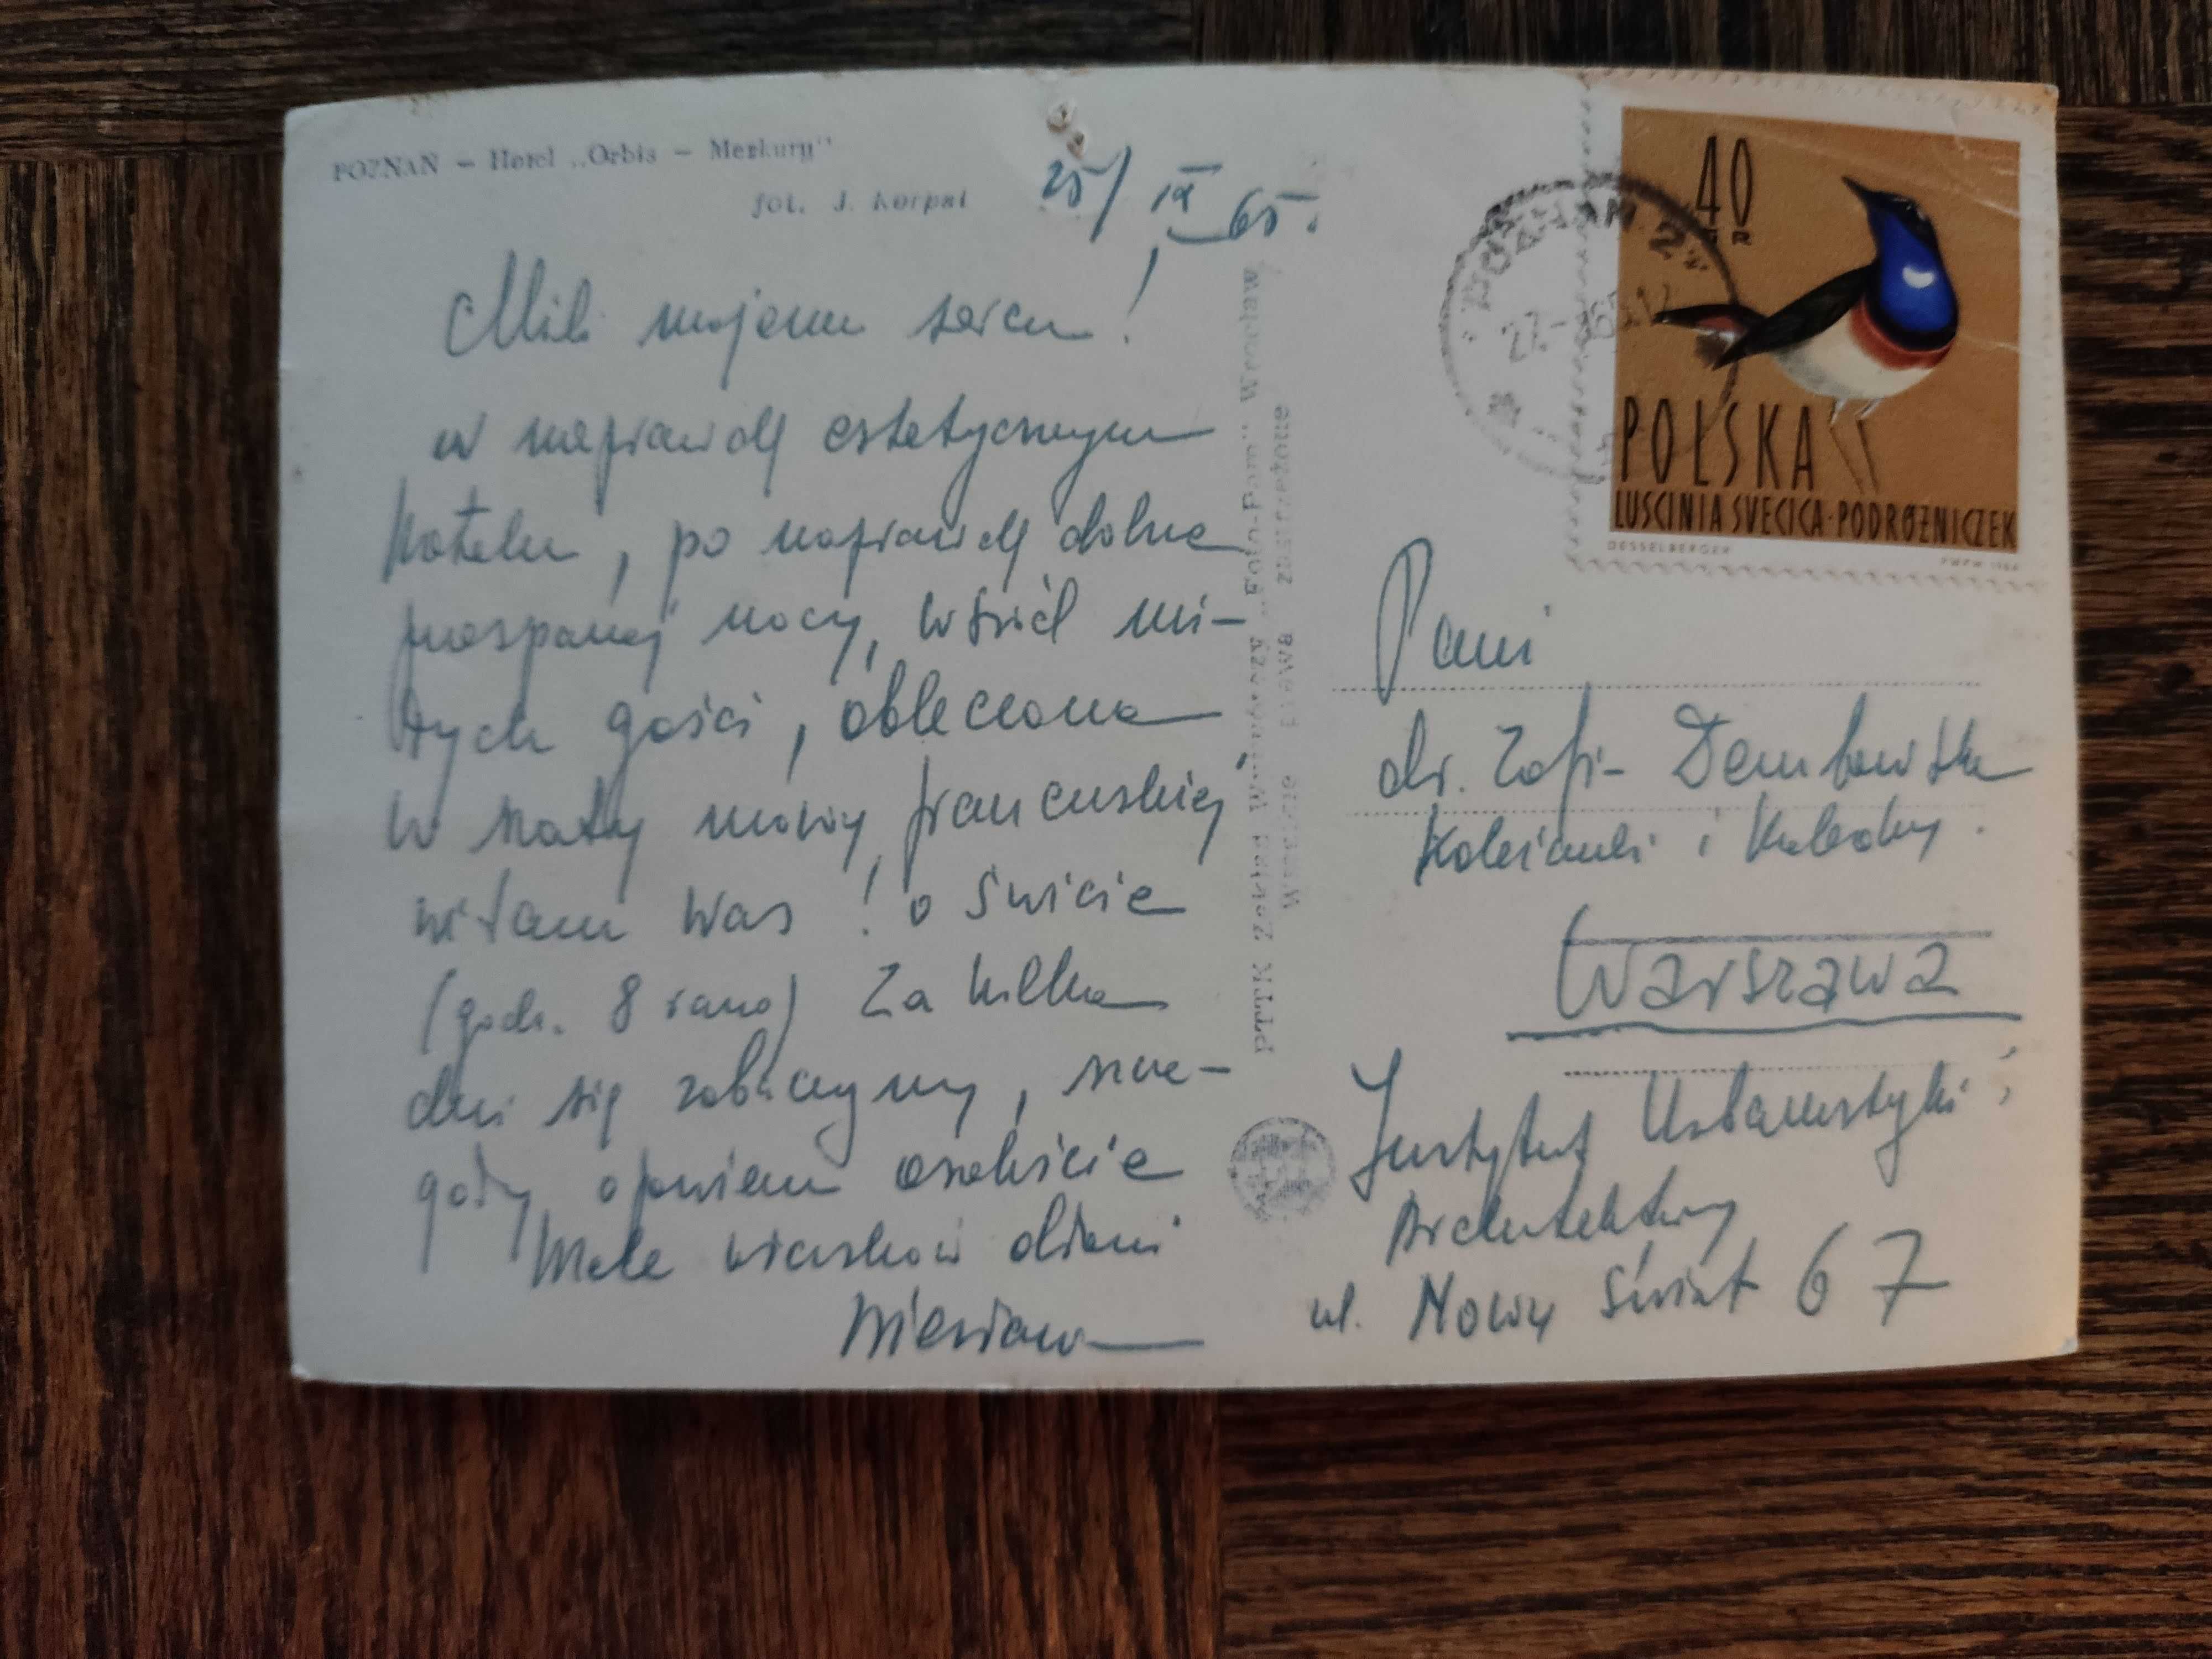 POZNAŃ – Hotel „Orbis – Merkury"
fot. J. Korpal
25/IX 65.
Mili mojemu sercu!
w naprawdę estetycznym
hotelu, po naprawdę dobrze
przespanej nocy, wśród mi-
łych gości, obleczona
w szaty mowy francuskiej
witam Was! o świcie
(godz. 8 rano) Za kilka
dni się zobaczymy, szcze-
góły opowiem osobiście
Mele dłoni
Wiesława
PTTK Zakład Wytwórczy „Foto-Pam" Wrocław
Wszelkie prawa zastrzeżone
POZNAŃ 2
40
GR
POLSKA
LUSCINIA SVECICA·PODRÓŻNICZEK
DESSELBERGER
PWPW 1966
Pani
dr. Zofia Dembowska
Koleżanki i Koledzy.
Warszawa
Instytut Urbanistyki i
Architektury
ul. Nowy Świat 67